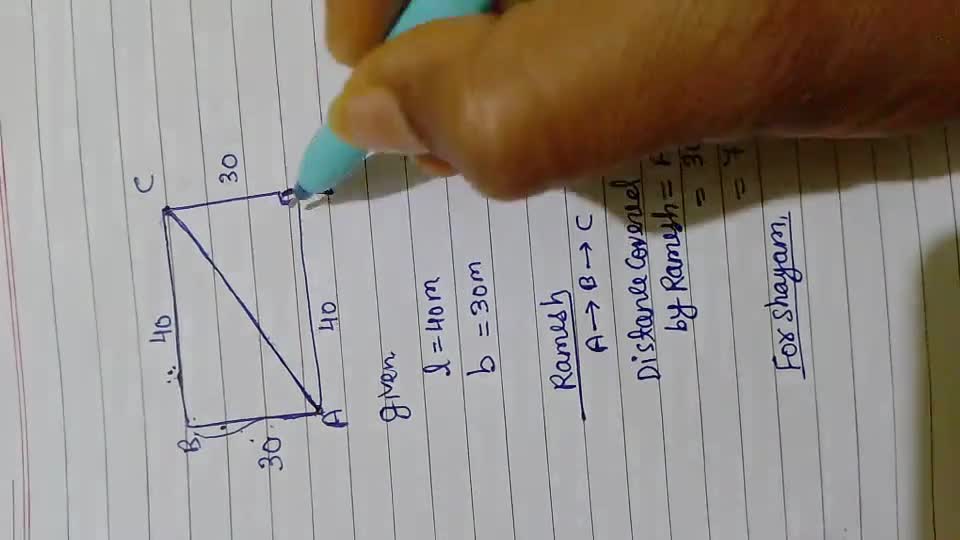 B
40
C
30
30
A
40
given
l = 40m
b = 30m
Ramesh
A → B → C
Distance Covered
by Ramesh =
=
=
For Shayam,